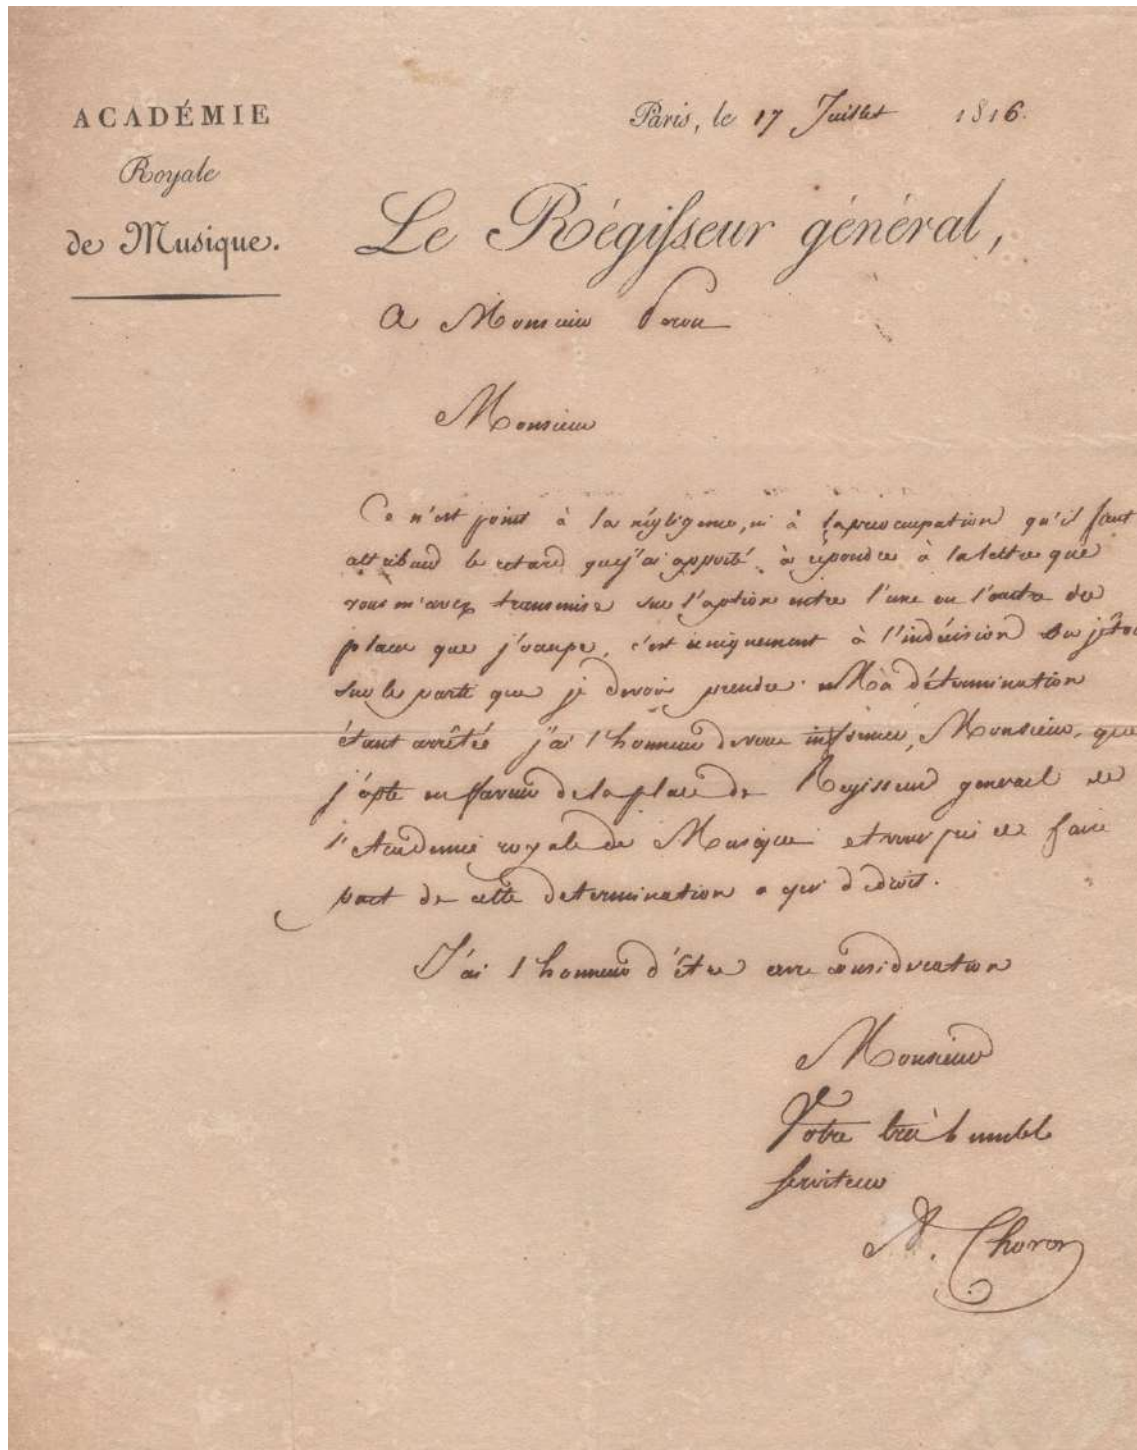 ACADÉMIE
Royale
de Musique.
Paris, le 17 Juillet 1816.
Le Régisseur général,
A Monsieur
Monsieur
Ce n'est point à la négligence, ni à la préoccupation qu'il faut
attribuer le retard que j'ai apporté à répondre à la lettre que
vous m'avez transmise sur l'option entre l'une ou l'autre des
places que j'occupe, c'est uniquement à l'indécision ou j'étois
sur le parti que je devois prendre. Ma détermination
étant arrêtée j'ai l'honneur de vous informer, Monsieur, que
j'opte en faveur de la place de Regisseur general de
l'Academie royale de Musique et vous prie de faire
part de cette determination a qui de droit.
J'ai l'honneur d'être avec consideration
Monsieur
Votre très humble
serviteur
A. Choron